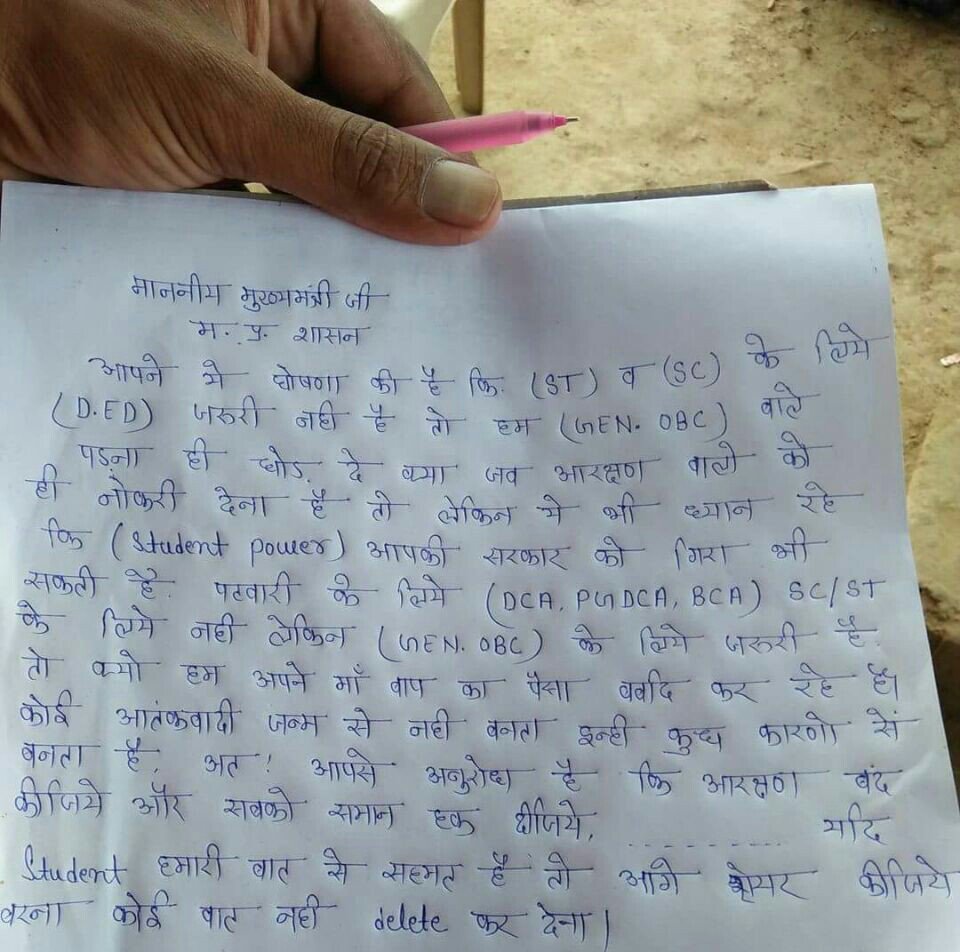 माननीय मुख्यमंत्री जी
म. प्र. शासन
आपने ये घोषणा की है कि. (ST) व (SC) के लिये
(D.ED) जरुरी नही है तो हम (GEN. OBC) वाले
पड़ना ही छोड़ दे क्या जब आरक्षण वालो को
ही नौकरी देना है तो लेकिन ये भी ध्यान रहे
कि (Student power) आपकी सरकार को गिरा भी
सकती है. पटवारी के लिये (DCA, PGDCA, BCA) SC/ST
के लिये नही लेकिन (GEN. OBC) के लिये जरुरी है.
तो क्यो हम अपने माँ बाप का पैसा बर्बाद कर रहे है।
कोई आतंकवादी जन्म से नही बनता इन्ही कुछ कारणो सें
बनता है. अत: आपसे अनुरोध है कि आरक्षण बंद
कीजिये और सबको समान हक दीजिये. .......... यदि
Student हमारी बात से सहमत है तो आगे शेयर कीजिये
वरना कोई बात नही delete कर देना।